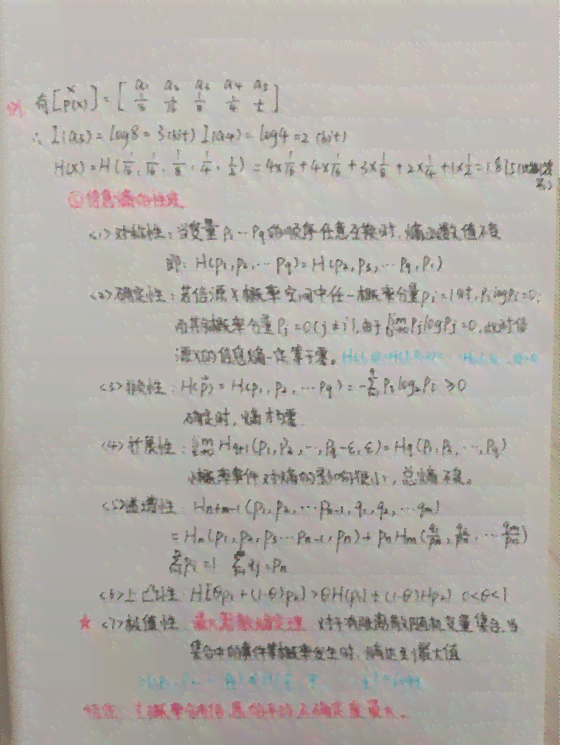 例 有[X P(x)]=[a₁ a₂ a₃ a₄ a₅ 1/16 1/16 1/8 1/4 1/2]
∴ I(a₃)=log8=3(bit) I(a₄)=log4=2(bit)
H(X)=H(1/16,1/16,1/8,1/4,1/2)=4×1/16+4×1/16+3×1/8+2×1/4+1×1/2=1.875(比特/符号)
信息熵的性质
<1>对称性:当变量P₁…Pq的顺序任意互换时,熵函数值不变
即:H(P₁,P₂,…Pq)=H(P₂,P₃,…Pq,P₁)
<2>确定性:若信源X概率空间中任一概率分量Pi=1时,PilogPi=0,
而其余概率分量Pj=0(j≠i),由于lim PjlogPj=0,此时信
源X的信息熵一定等于零。
<3>非负性:H(P)=H(P₁,P₂,…Pq)=-∑Pilog₂Pi≥0
确定时,熵为零
<4>扩展性:lim Hq+1(P₁,P₂,…,Pq-ε,ε)=Hq(P₁,P₂,…,Pq)
小概率事件对熵的影响很小,总熵不变。
<5>递增性:Hn+m-1(P₁,P₂,…Pn-1,q₁,q₂,…qm)
=Hn(P₁,P₂,P₃…Pn-1,Pn)+PnHm(q₁/Pn,q₂/Pn,…qm/Pn)
∑Pi=1 ∑qj=Pn
<6>上凸性:H[θP₁+(1-θ)P₂]>θH(P₁)+(1-θ)H(P₂) 0<θ<1
★<7>极值性 最大离散熵定理 对于有限离散随机变量集合,当
集合中的事件等概率发生时,熵达到最大值